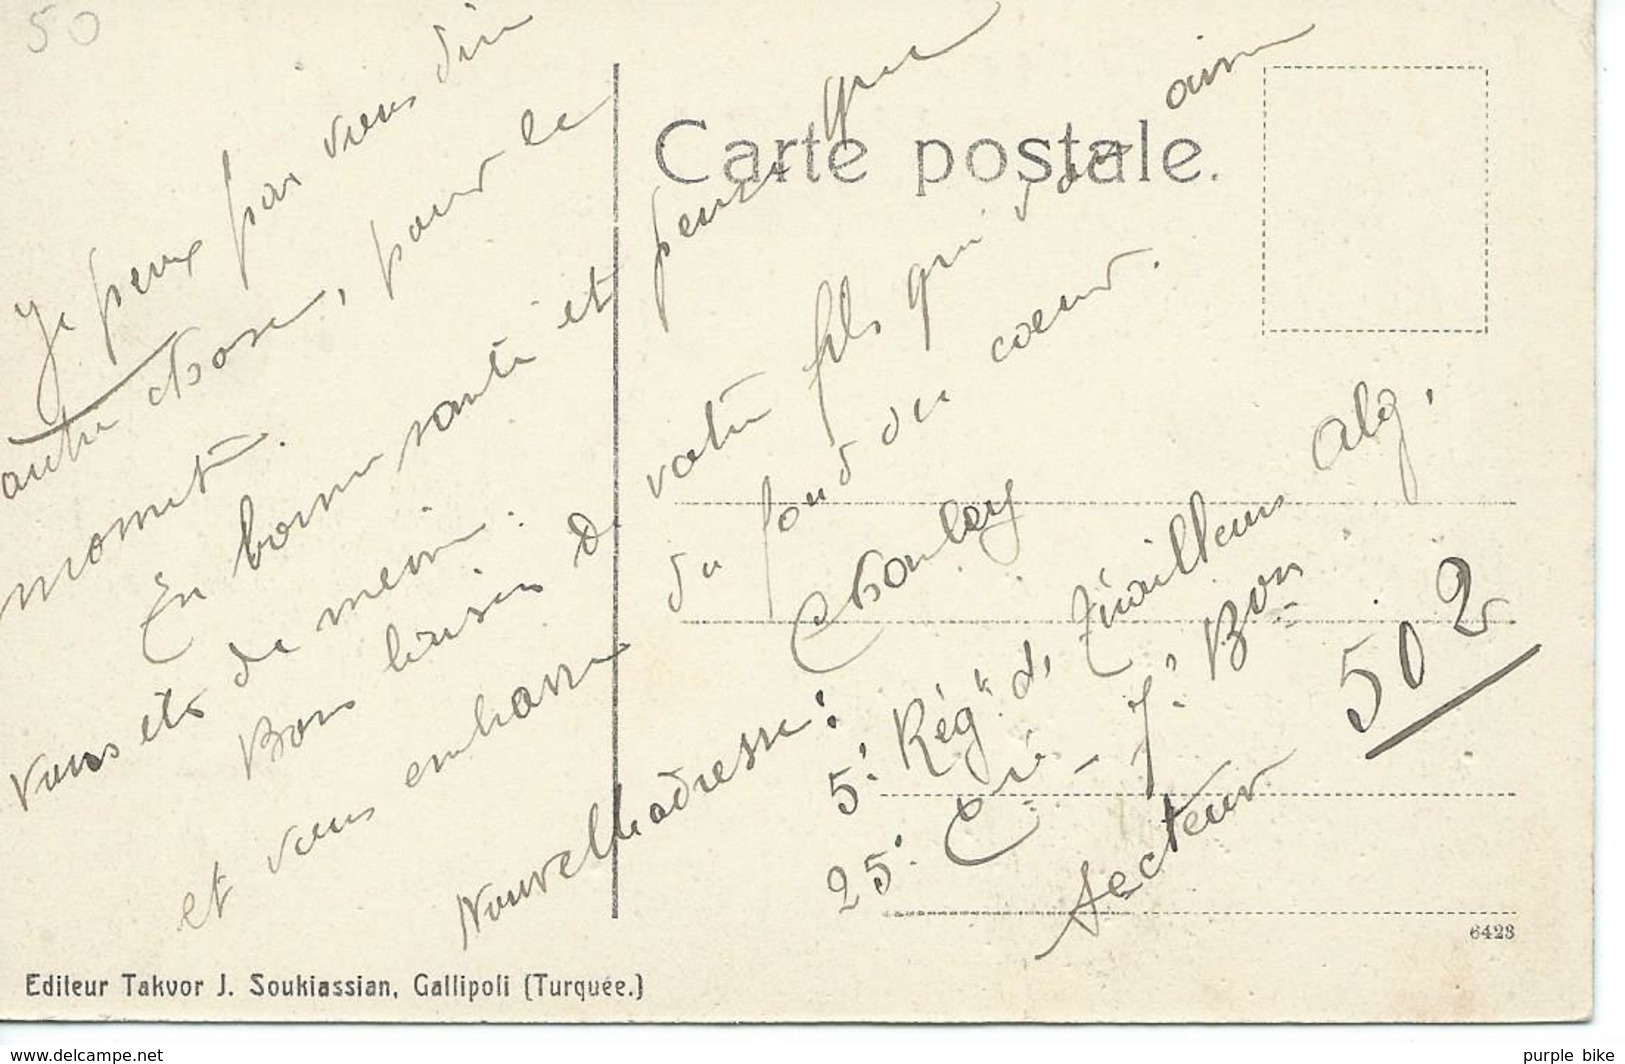 50
Carte postale.
Je peux pas vous dire
autre chose, pour le
moment.
En bonne santé et pense que
vous êtes de même.
Bons baisers de votre fils qui vous aime
et vous embrasse du fond du coeur.
Charley
Nouvelle adresse :
5e Régt de Tirailleurs Alg.
25e Cie - 7e Bon
Secteur 502
6423
Editeur Takvor J. Soukiassian, Gallipoli (Turquée.)
www.delcampe.net
purple bike